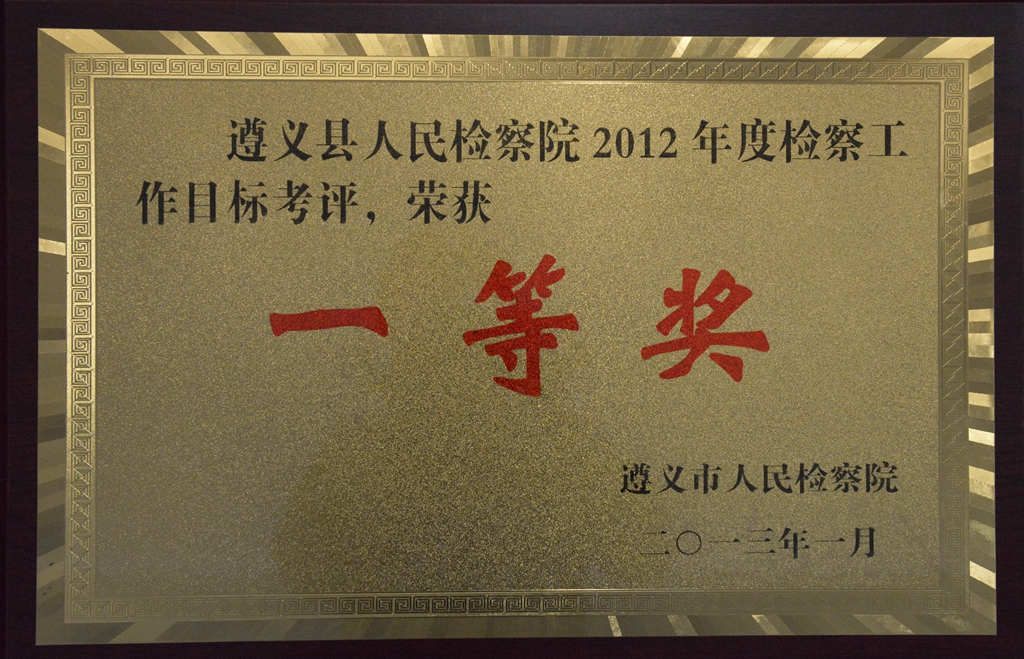 遵义县人民检察院2012年度检察工
作目标考评，荣获
一等奖
遵义市人民检察院
二〇一三年一月